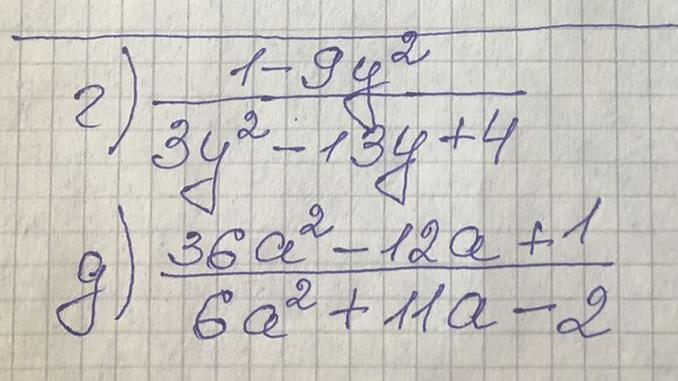 г) (1-9y²)/(3y²-13y+4)
д) (36a²-12a+1)/(6a²+11a-2)